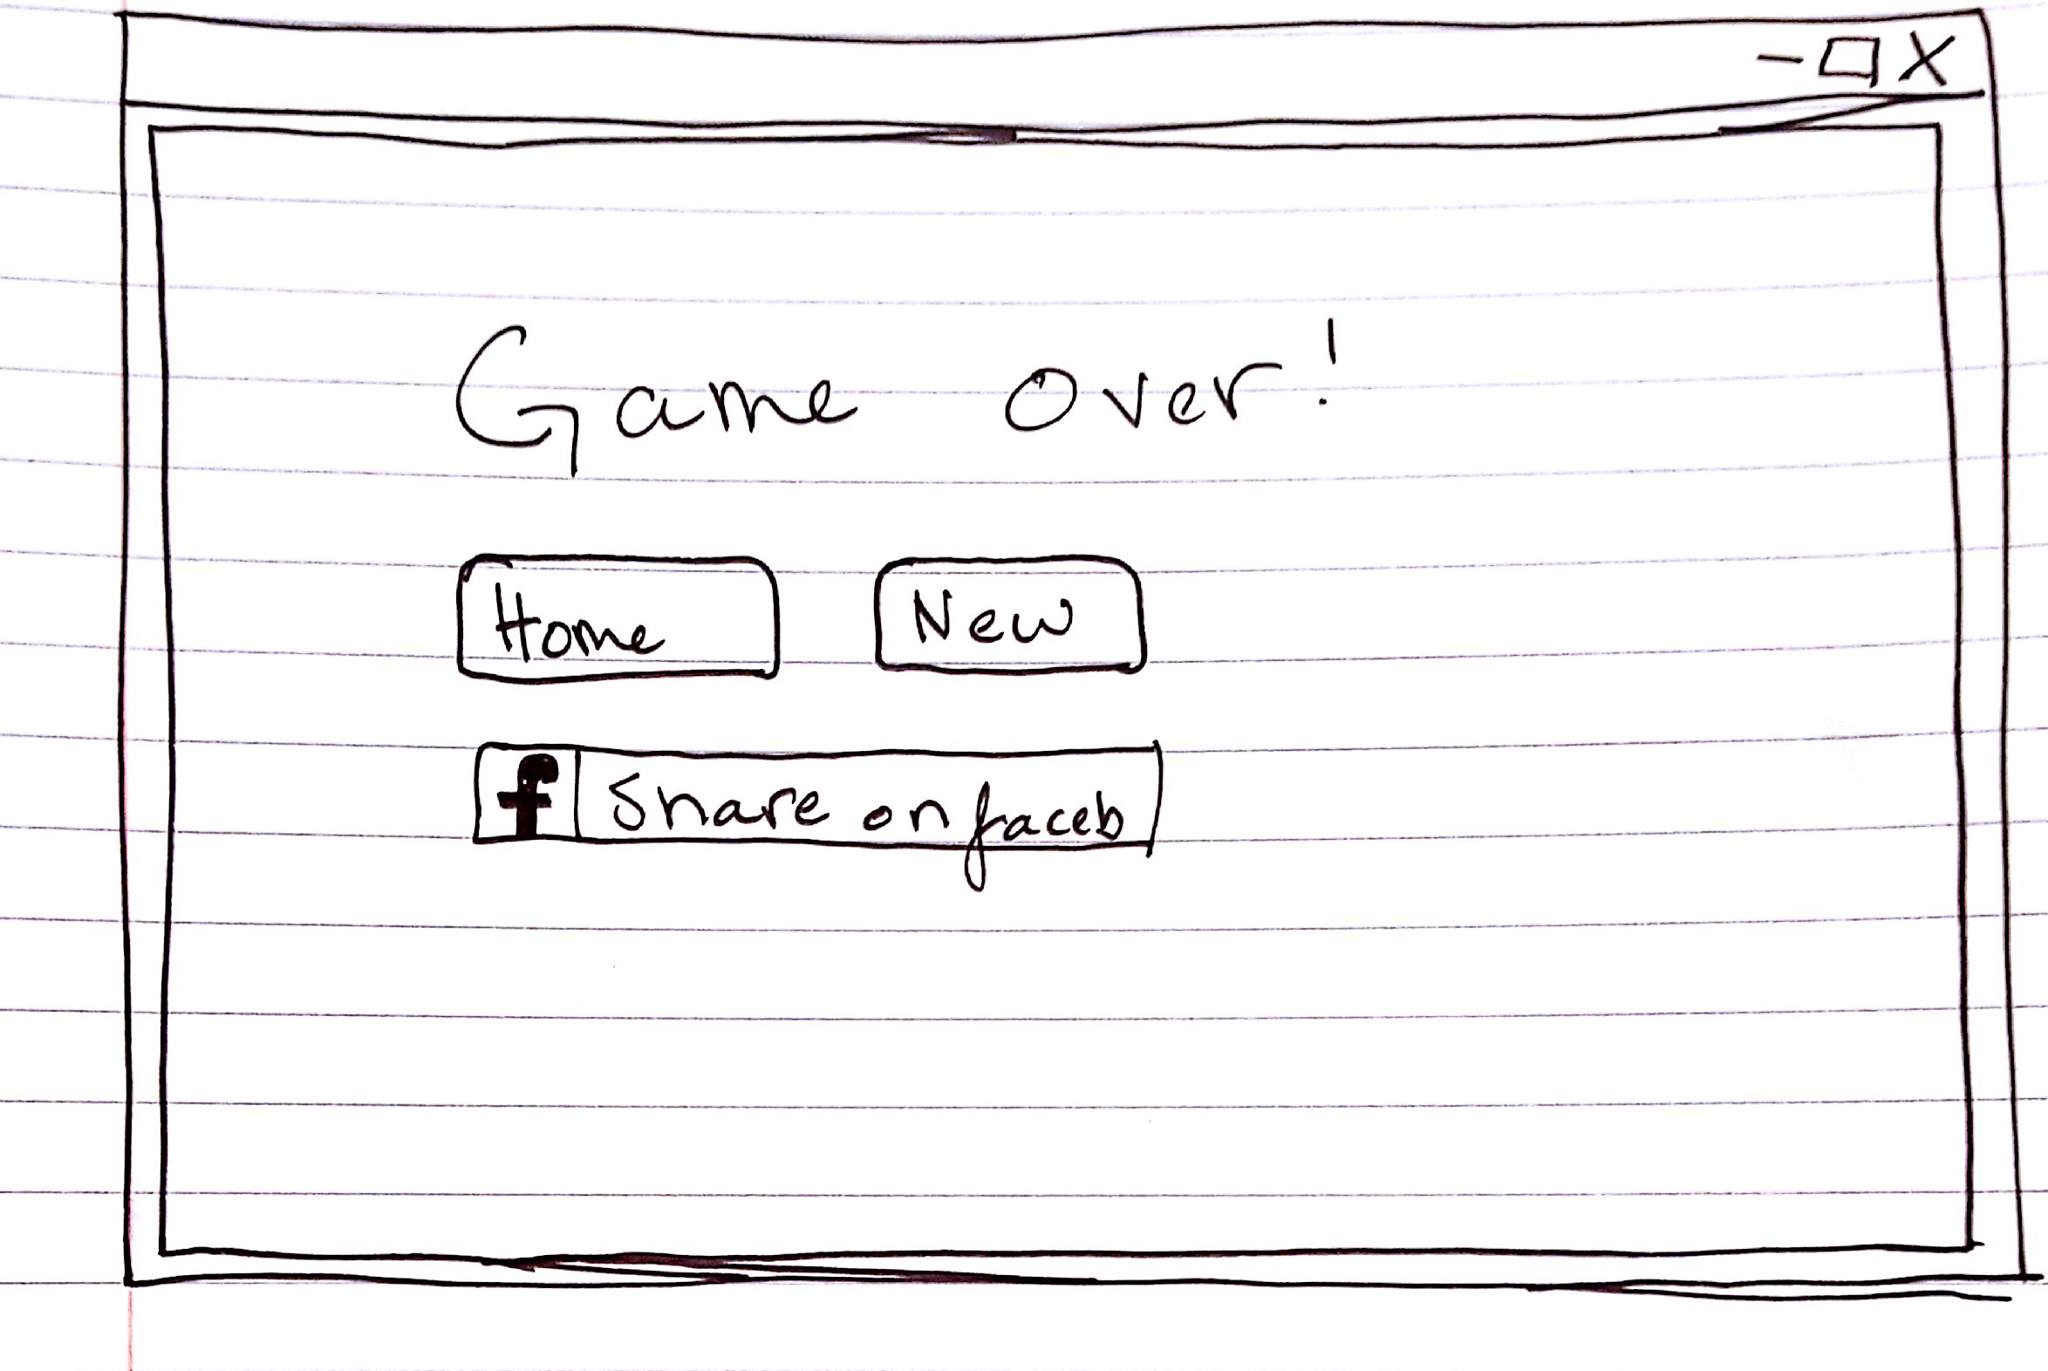 - □ X
Game over!
Home New
f Share on faceb